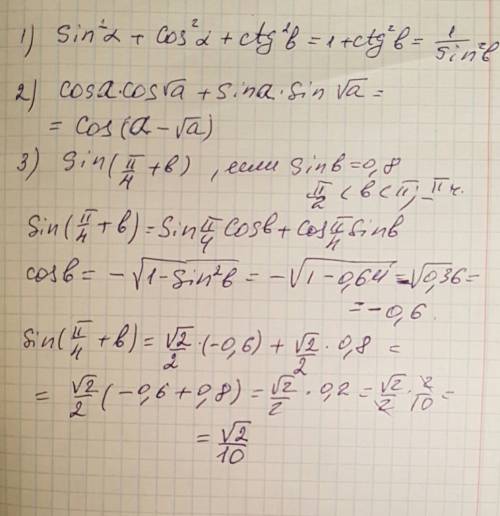 1) Sin²α + Cos²α + ctg²b = 1 + ctg²b = 1/Sin²b
2) cosa·cos√a + Sina·Sin √a =
= Cos(a - √a)
3) Sin(π/4 + b) , если Sinb = 0,8
π/2 < b < π; II ч.
Sin(π/4 + b) = Sin π/4 Cosb + Cos π/4 Sinb
cosb = -√(1 - Sin²b) = -√(1 - 0,64) = √0,36 =
= -0,6.
Sin(π/4 + b) = √2/2 · (-0,6) + √2/2 · 0,8 =
= √2/2 (-0,6 + 0,8) = √2/2 · 0,2 = √2/2 · 2/10 =
= √2/10